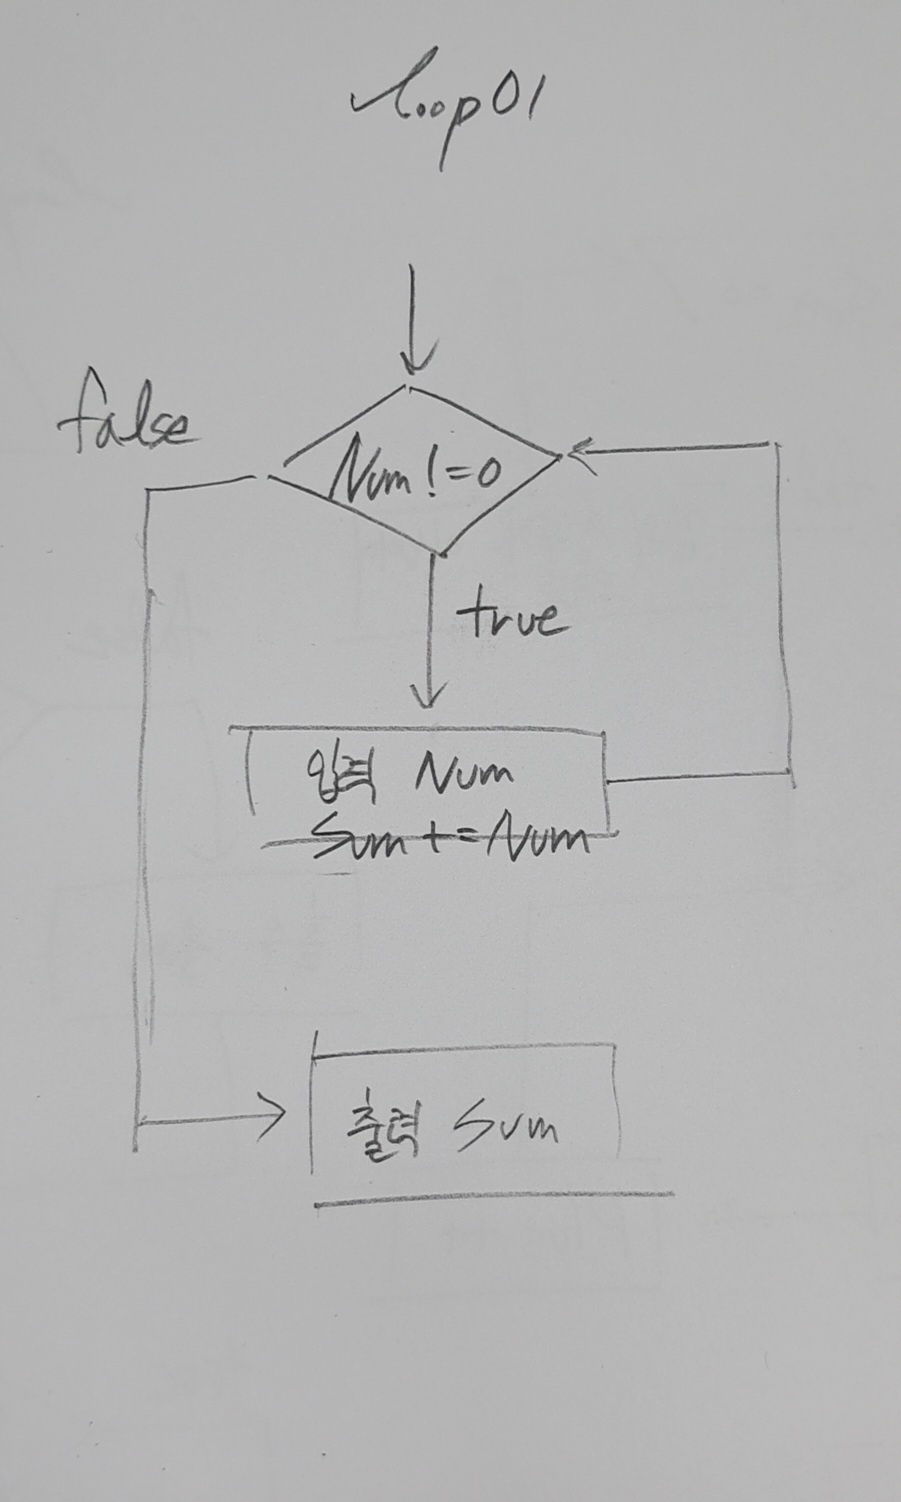 loop01
false
Num != 0
true
입력 Num
Sum += Num
출력 Sum